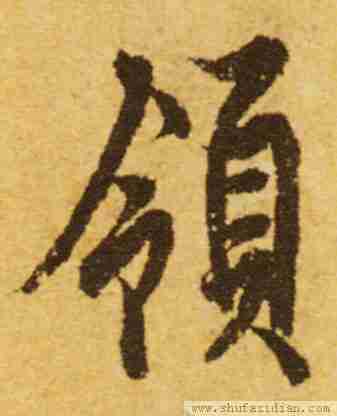 領
www.shufazidian.com